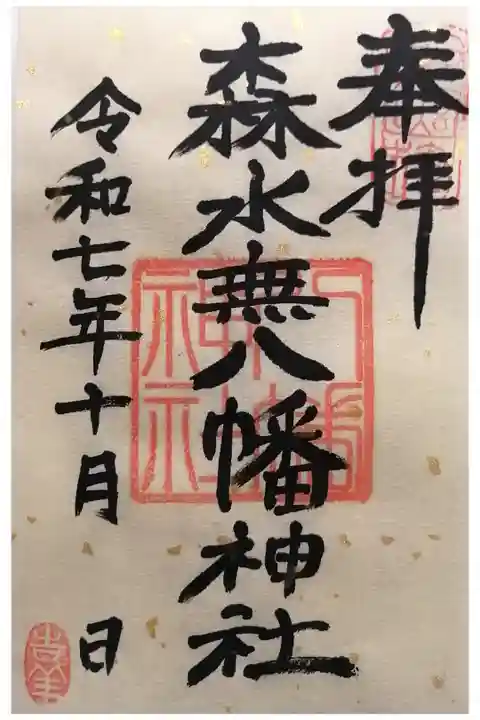 奉拝
森水無八幡神社
令和七年十月 日
八幡神社